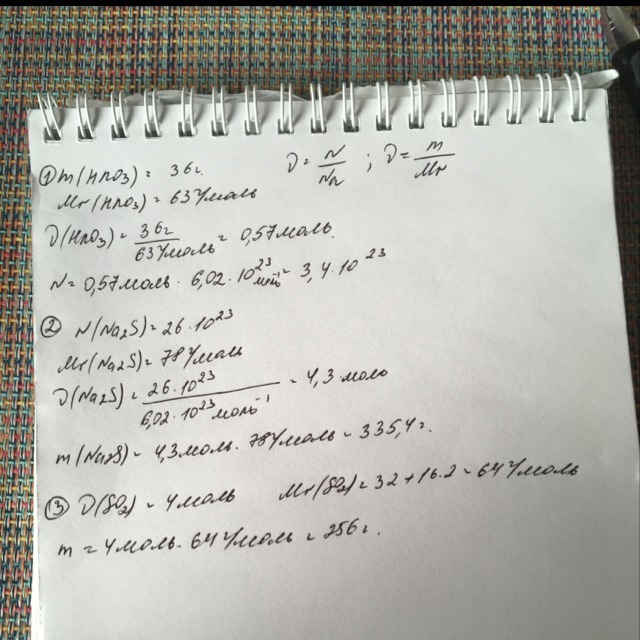 ① m(HNO₃) = 36г. ν = N/Nₐ ; ν = m/Mr
Mr(HNO₃) = 63 г/моль
ν(HNO₃) = 36г/63 г/моль = 0,57 моль.
N = 0,57 моль · 6,02 · 10²³ моль⁻¹ = 3,4 · 10²³
② N(Na₂S) = 26 · 10²³
Mr(Na₂S) = 78 г/моль
ν(Na₂S) = 26 · 10²³/6,02 · 10²³ моль⁻¹ = 4,3 моль
m(Na₂S) = 4,3 моль · 78 г/моль = 335,4 г.
③ ν(SO₂) = 4 моль Mr(SO₂) = 32 + 16 · 2 = 64 г/моль
m = 4 моль · 64 г/моль = 256 г.